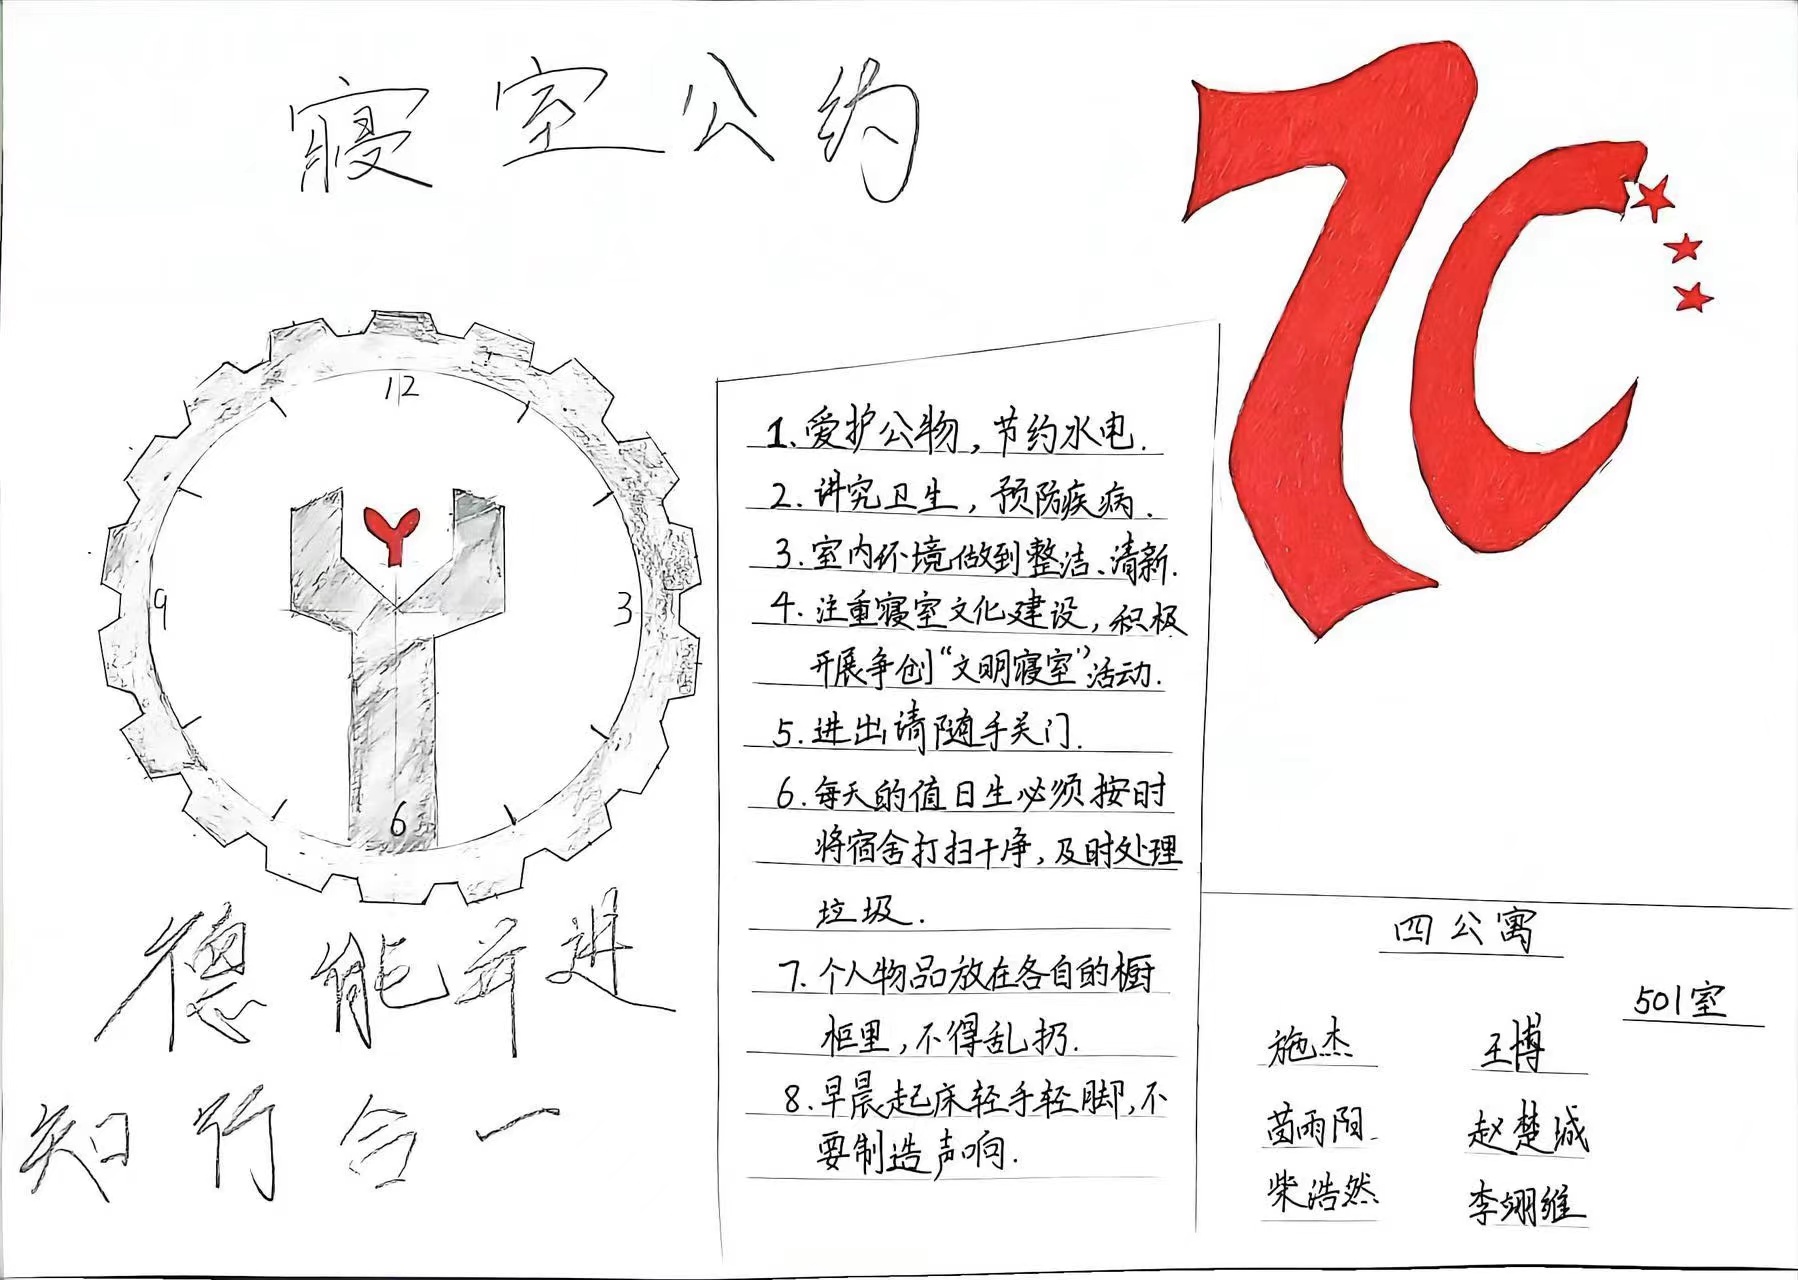 寝室公约
70
12
9
3
6
德能并进
知行合一
1. 爱护公物，节约水电.
2. 讲究卫生，预防疾病.
3. 室内环境做到整洁、清新.
4. 注重寝室文化建设，积极
开展争创“文明寝室”活动.
5. 进出请随手关门.
6. 每天的值日生必须按时
将宿舍打扫干净，及时处理
垃圾.
7. 个人物品放在各自的橱
柜里，不得乱扔.
8. 早晨起床轻手轻脚，不
要制造声响.
四公寓
501室
施杰 王博
茵雨阳 赵楚城
柴浩然 李翊维